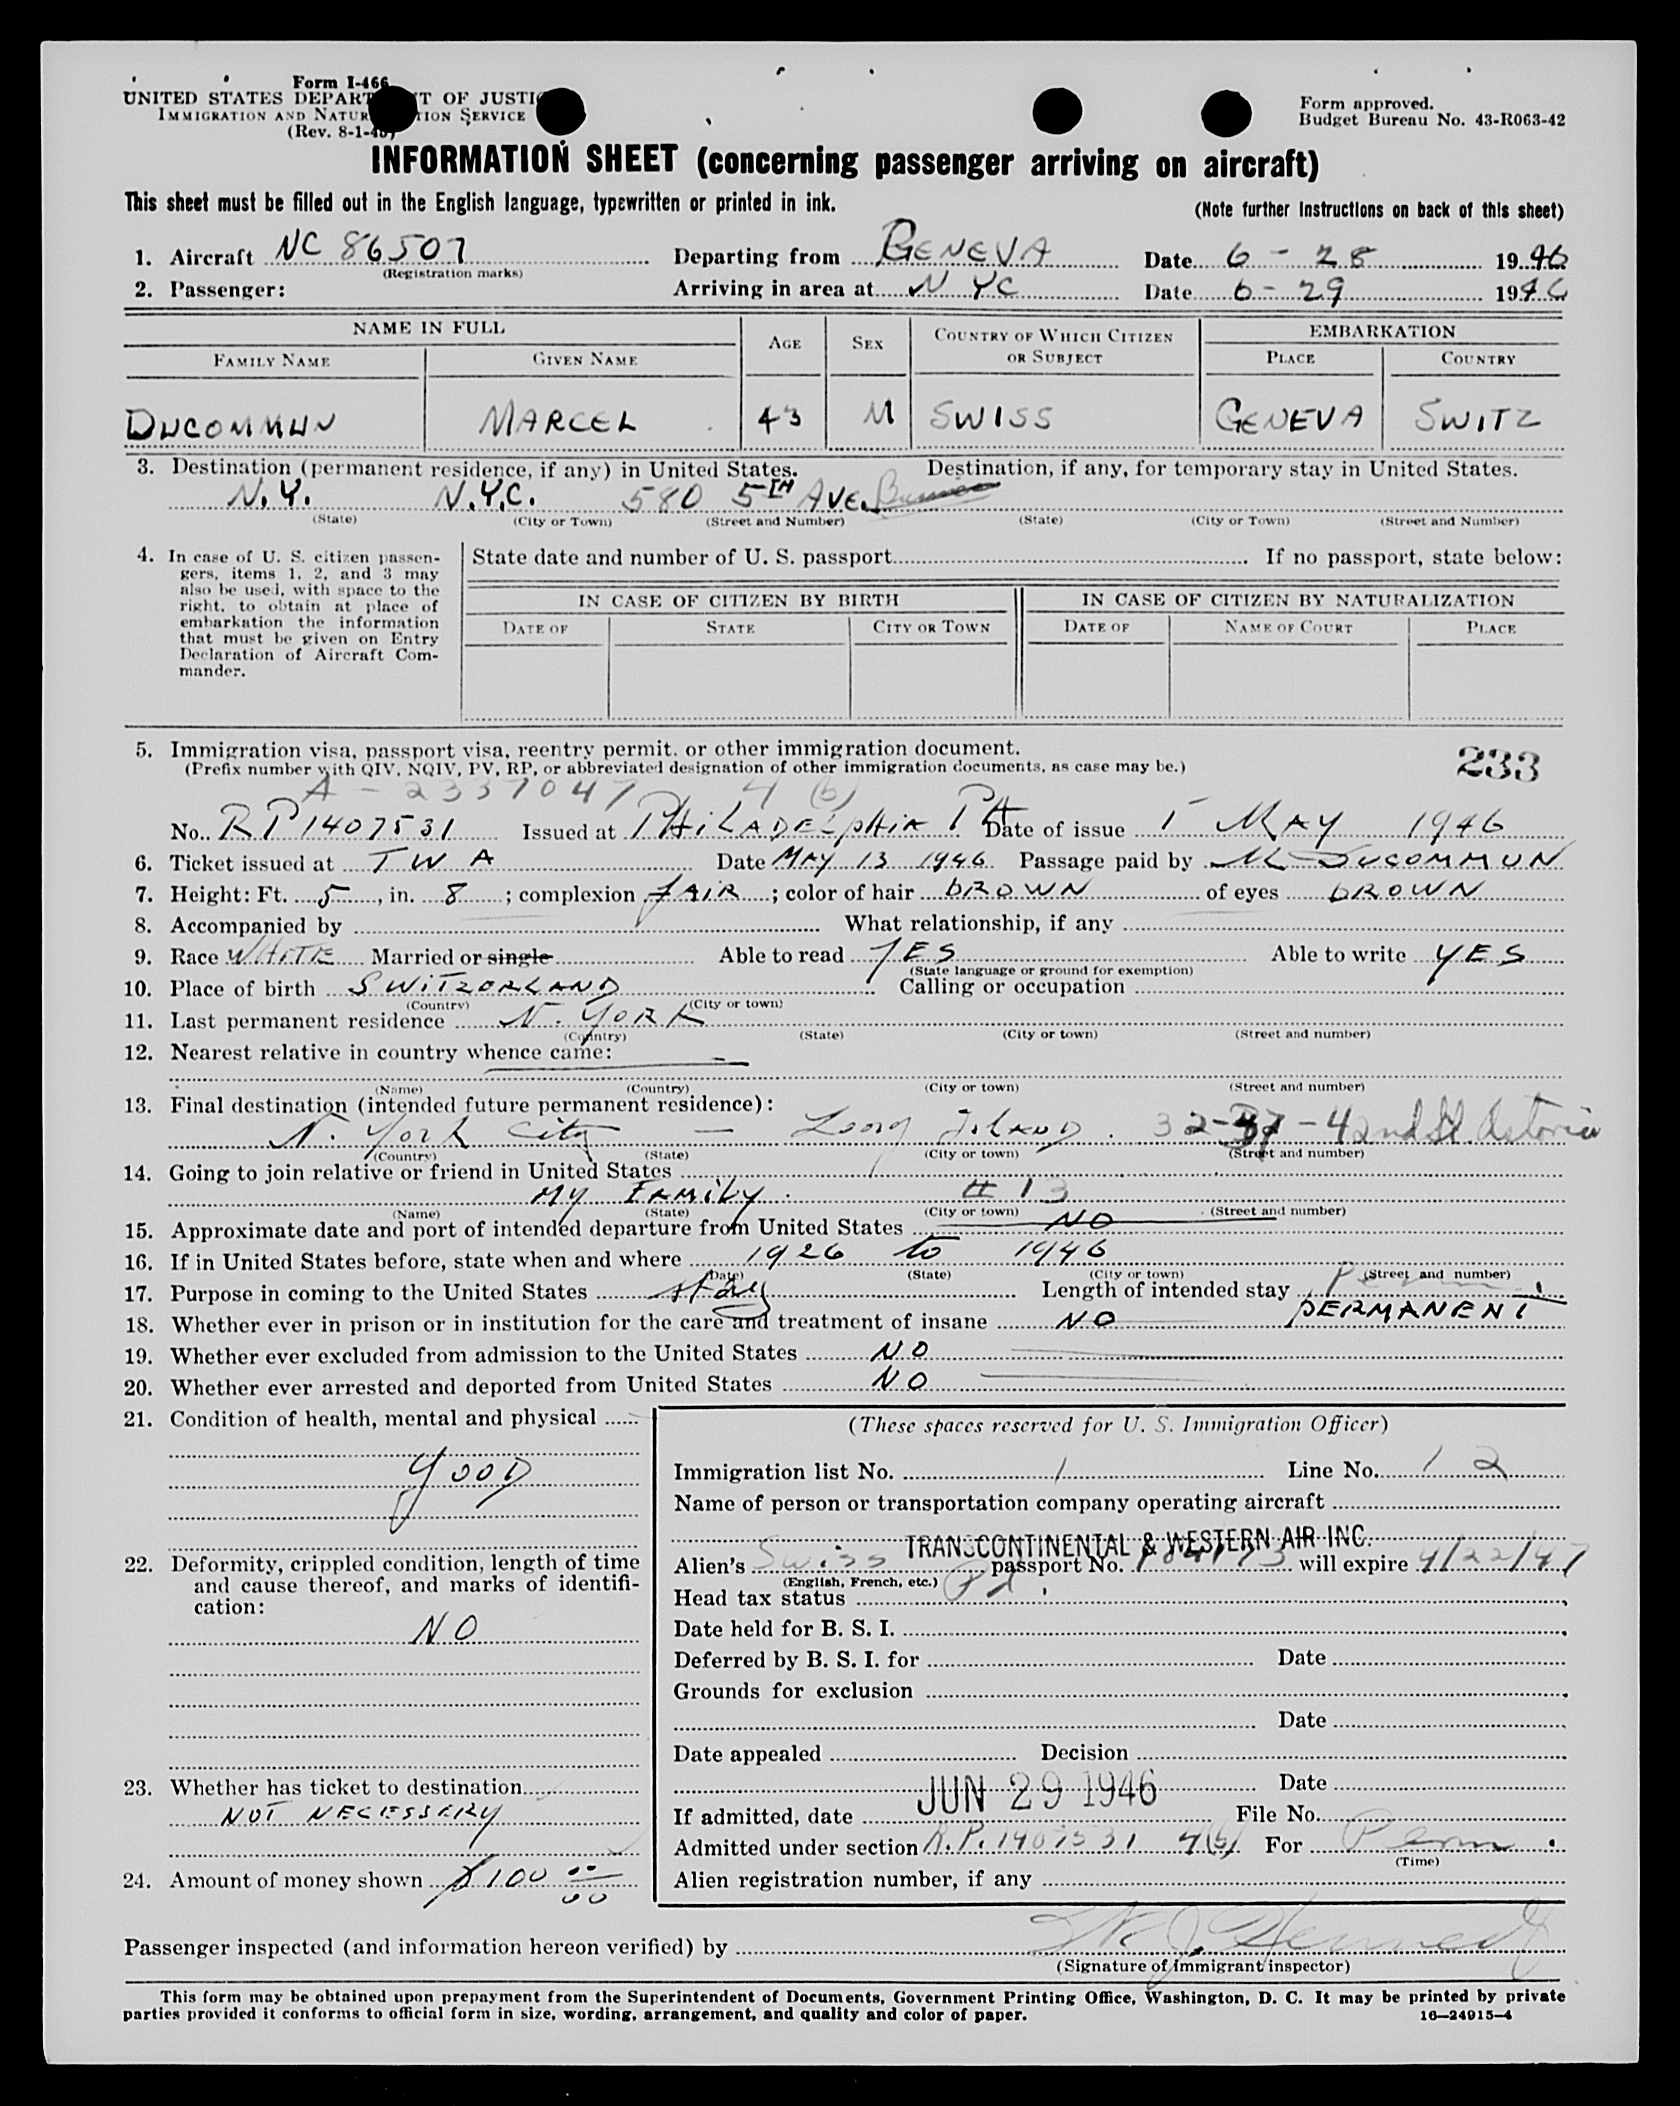 Form I-466
UNITED STATES DEPART T OF JUSTI
IMMIGRATION AND NATUR TION SERVICE
(Rev. 8-1-45)
Form approved.
Budget Bureau No. 43-R063-42
INFORMATION SHEET (concerning passenger arriving on aircraft)
This sheet must be filled out in the English language, typewritten or printed in ink.
(Note further instructions on back of this sheet)
1. Aircraft NC 86507 Departing from GENEVA Date 6 - 28 1946
(Registration marks)
2. Passenger: Arriving in area at N YC Date 6 - 29 1946
NAME IN FULL AGE SEX COUNTRY OF WHICH CITIZEN OR SUBJECT EMBARKATION
FAMILY NAME GIVEN NAME PLACE COUNTRY
DUCOMMUN MARCEL 43 M SWISS GENEVA SWITZ
3. Destination (permanent residence, if any) in United States. Destination, if any, for temporary stay in United States.
N.Y. N.Y.C. 580 5TH AVE.
(State) (City or Town) (Street and Number) (State) (City or Town) (Street and Number)
4. In case of U. S. citizen passen-
gers, items 1, 2, and 3 may
also be used, with space to the
right, to obtain at place of
embarkation the information
that must be given on Entry
Declaration of Aircraft Com-
mander.
State date and number of U. S. passport If no passport, state below:
IN CASE OF CITIZEN BY BIRTH IN CASE OF CITIZEN BY NATURALIZATION
DATE OF STATE CITY OR TOWN DATE OF NAME OF COURT PLACE
5. Immigration visa, passport visa, reentry permit, or other immigration document.
(Prefix number with QIV, NQIV, PV, RP, or abbreviated designation of other immigration documents, as case may be.)
233
A - 2337047 4 (b)
No. RP 1407531 Issued at PHILADELPHIA PA Date of issue 1 MAY 1946
6. Ticket issued at TWA Date MAY 13 1946 Passage paid by M DUCOMMUN
7. Height: Ft. 5, in. 8; complexion FAIR; color of hair BROWN of eyes BROWN
8. Accompanied by What relationship, if any
9. Race WHITE Married or single Able to read YES Able to write YES
(State language or ground for exemption)
10. Place of birth SWITZORLAND Calling or occupation
(Country) (City or town)
11. Last permanent residence N. YORK
(Country) (State) (City or town) (Street and number)
12. Nearest relative in country whence came:
(Name) (Country) (City or town) (Street and number)
13. Final destination (intended future permanent residence):
N. York City - Long Island. 32- - 42nd St Astoria
(Country) (State) (City or town) (Street and number)
14. Going to join relative or friend in United States
MY FAMILY. # 13
(Name) (State) (City or town) (Street and number)
15. Approximate date and port of intended departure from United States NO
16. If in United States before, state when and where 1926 to 1946
(Date) (State) (City or town) (Street and number)
17. Purpose in coming to the United States stay Length of intended stay Perm.
PERMANENT
18. Whether ever in prison or in institution for the care and treatment of insane NO
19. Whether ever excluded from admission to the United States NO
20. Whether ever arrested and deported from United States NO
21. Condition of health, mental and physical
GOOD
22. Deformity, crippled condition, length of time
and cause thereof, and marks of identifi-
cation:
NO
23. Whether has ticket to destination
NOT NECESSERY
24. Amount of money shown $100 00/00
(These spaces reserved for U. S. Immigration Officer)
Immigration list No. 1 Line No. 12
Name of person or transportation company operating aircraft
TRANSCONTINENTAL & WESTERN AIR INC.
Alien's Swiss passport No. will expire 4/22/47
(English, French, etc.)
Head tax status Pd.
Date held for B. S. I.
Deferred by B. S. I. for Date
Grounds for exclusion
Date
Date appealed Decision
Date
If admitted, date JUN 29 1946 File No.
Admitted under section R.P. 1407531 4(b) For Perm.
(Time)
Alien registration number, if any
Passenger inspected (and information hereon verified) by
(Signature of immigrant inspector)
This form may be obtained upon prepayment from the Superintendent of Documents, Government Printing Office, Washington, D. C. It may be printed by private
parties provided it conforms to official form in size, wording, arrangement, and quality and color of paper.
16—24915-4